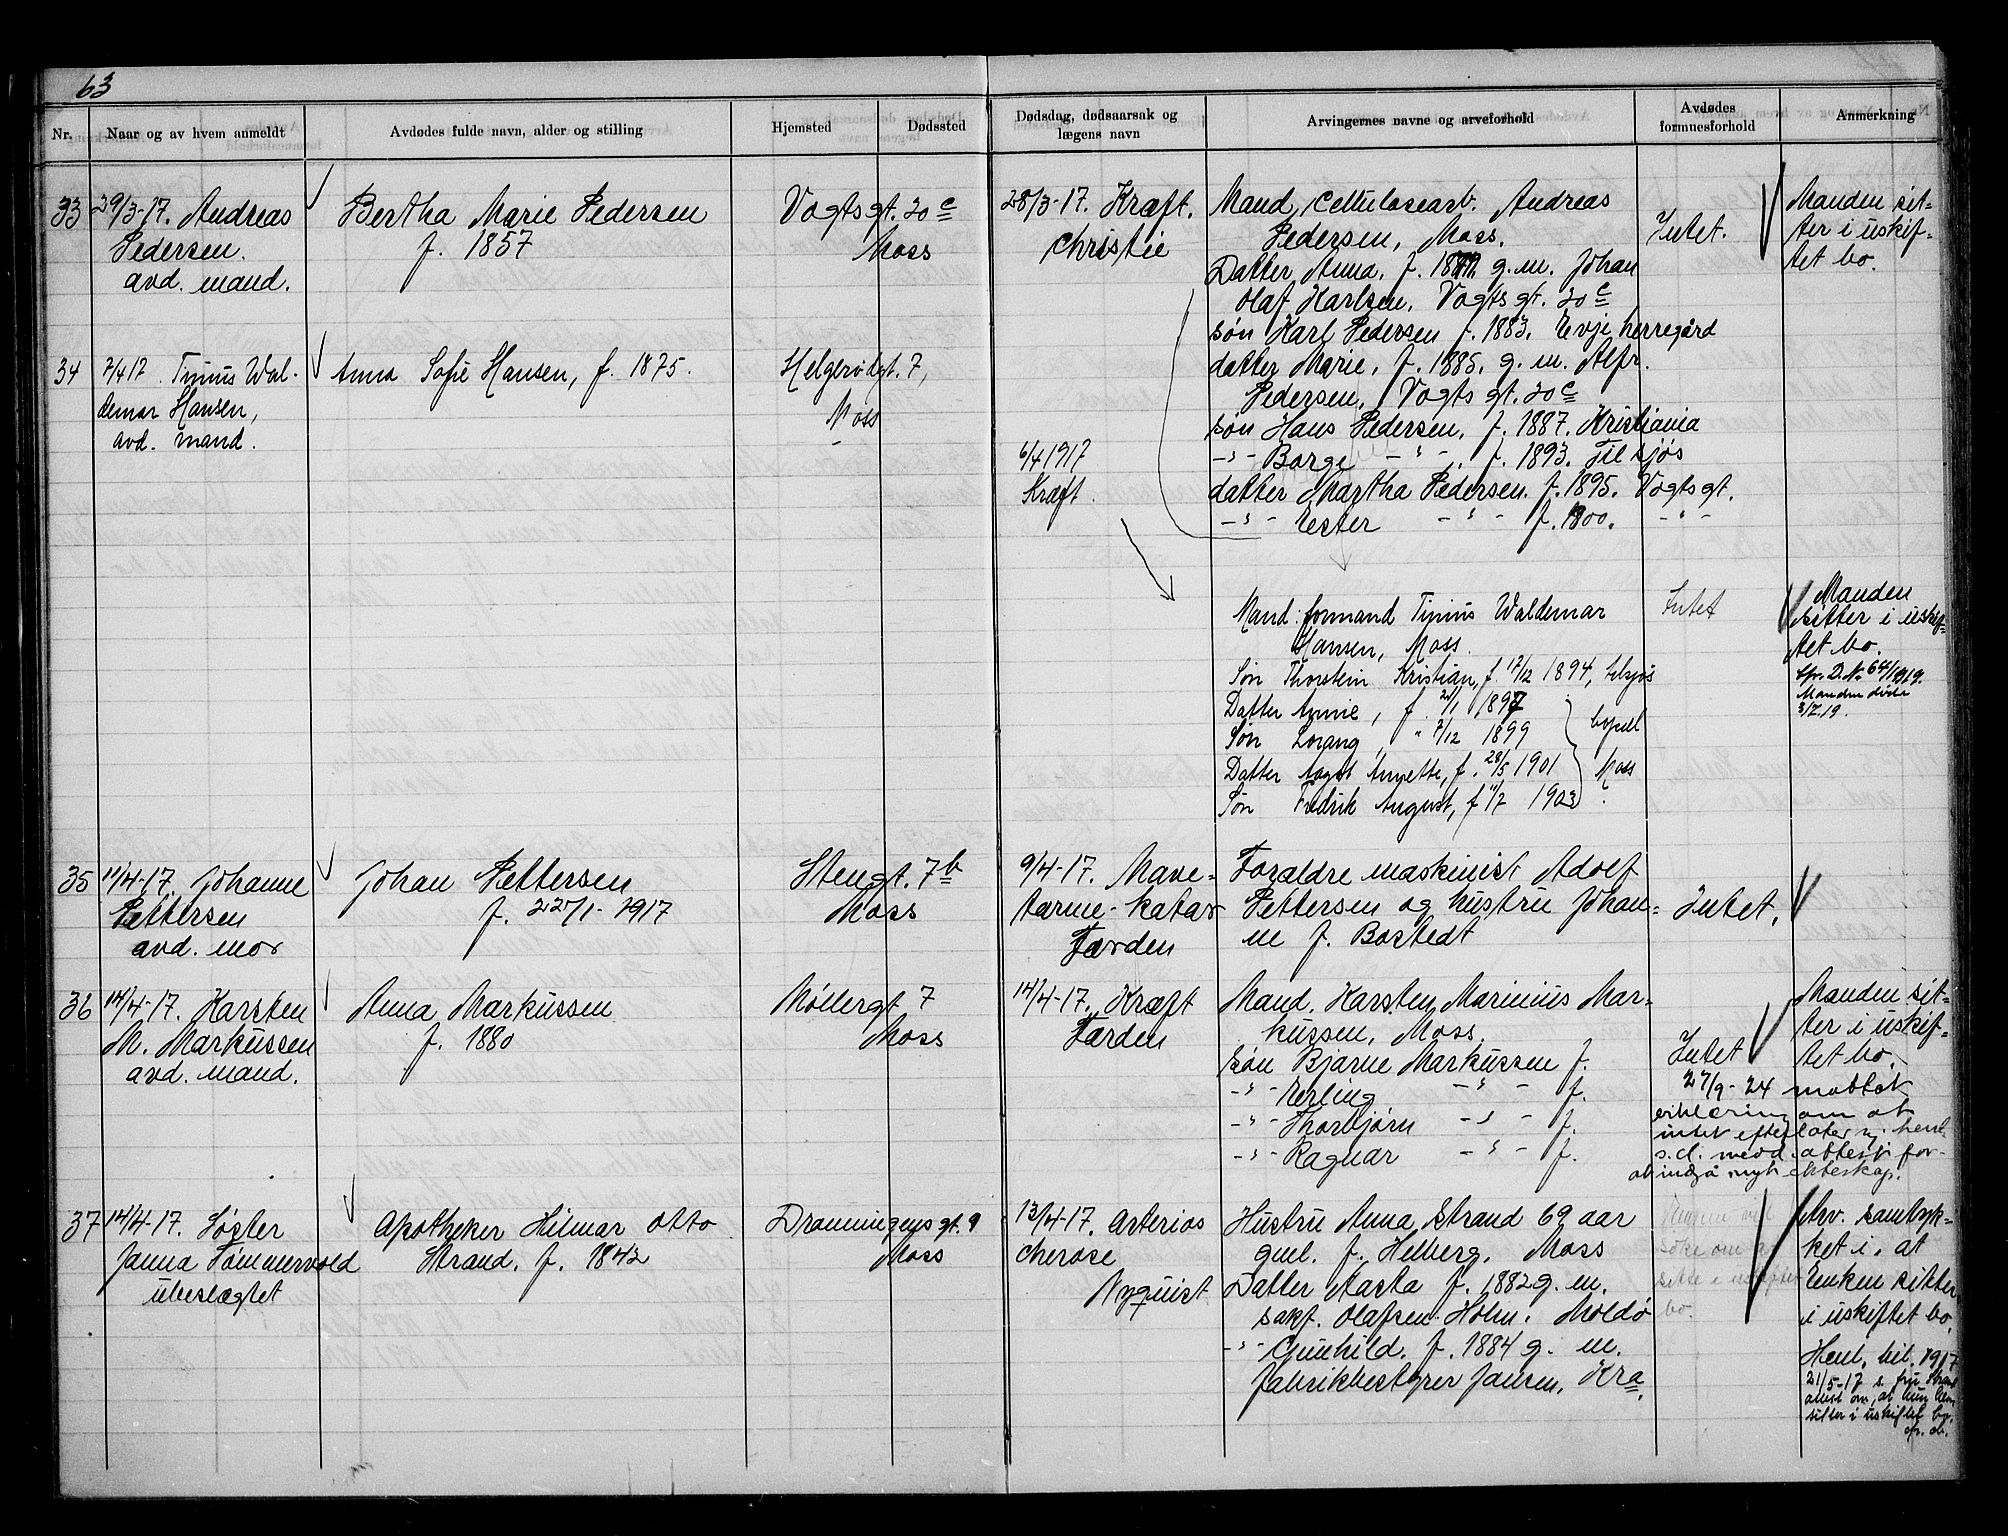 63
Nr.
Naar og av hvem anmeldt
Avdødes fulde navn, alder og stilling
Hjemsted
Dødssted
Dødsdag, dødsaarsak og
lægens navn
Arvingernes navne og arveforhold
Avdødes
formuesforhold
Anmerkning
33
29/3-17. Andreas
Pedersen.
avd. mand.
Bertha Marie Pedersen
f. 1857
Vogtsgt. 20 c
Moss
28/3-17. Kræft.
Christie
Mand Cellulosearb. Andreas
Pedersen, Moss.
Datter Anna, f. g.m. Johan
Olaf Karlsen. Vogtsgt. 20 c
søn Karl Pedersen f. 1883. Evje herregård
datter Marie, f. 1885. g. m. Alfr.
Pedersen, Vogtsgt. 20 c
søn Hans Pedersen, f. 1887. Kristiania
-"- Borge -"- f. 1893. Til sjøs
datter Martha Pedersen. f. 1895. Vogtsgt.
-"- Ester -"- f. 1900. -"-
Intet.
Manden sit-
ter i uskif-
tet bo.
34
7/4 17. Tinius Wal-
demar Hansen,
avd. mand.
Anna Sofie Hansen, f. 1875.
Helgerødgt. 7,
Moss
6/4 1917
Kræft.
Mand: formand Tinius Waldemar
Hansen, Moss.
Søn Thorstein Kristian, f. 17/12 1894, tilsjøs
Datter Annie, f. 2/1 1897
Søn Lorang, " 7/12 1899
Datter Aagot Annette, f. 28/5 1901
Søn Fredrik August, f. 11/7 1903
bopæl
Moss
Intet
Manden
sitter i uskif-
tet bo.
Cfr. D. No 64/1919.
Manden døde
3/7. 19.
35
11/4-17. Johanne
Pettersen
avd. mor
Johan Pettersen
f. 22/1-1917
Stengt. 7 b
Moss
9/4-17. Mave-
tarme-katar
Færden
Forældre maskinist Adolf
Pettersen og hustru Johan-
ne f. Bostedt
Intet.
36
14/4-17. Karsten
M. Markussen
avd. mand.
Anna Markussen
f. 1880
Møllergt 7
Moss
14/4-17. Kræft
Færden
Mand. Karsten Marinius Mar-
kussen, Moss.
søn Bjarne Markussen f.
-"- Erling -"- f.
-"- Thorbjørn -"- f.
-"- Ragnar -"- f.
Intet
Manden sit-
ter i uskif-
tet bo.
27/9-24 mottat
erklæring om at
intet efterlates
s.d. medd. attest for
at indgå nyt ekteskap.
37
14/4-17. Søster
Janna Sommervold
ubeslægtet
Apotheker Hilmar Otto
Strand. f. 1842
Dronningens gt. 9
Moss
13/4-17. Arterios
cherose
Nyquist
Hustru Anna Strand 69 aar
gml. f. Helberg. Moss
Datter Aasta f. 1882 g. m.
sakf. Olafsen-Holm. Moldø
-"- Gunhild. f. 1884 g. m.
fabrikbestyrer Jansen, Kra.
Enken vil
søke om at
sitte i uskiftet
bo.
Arv. samtyk-
ket i, at
Enken sitter
i uskiftet bo.
Henl. bil. 1917
21/5-17 s. fru Strand
attest om, at hun
sitter i uskiftet bo.